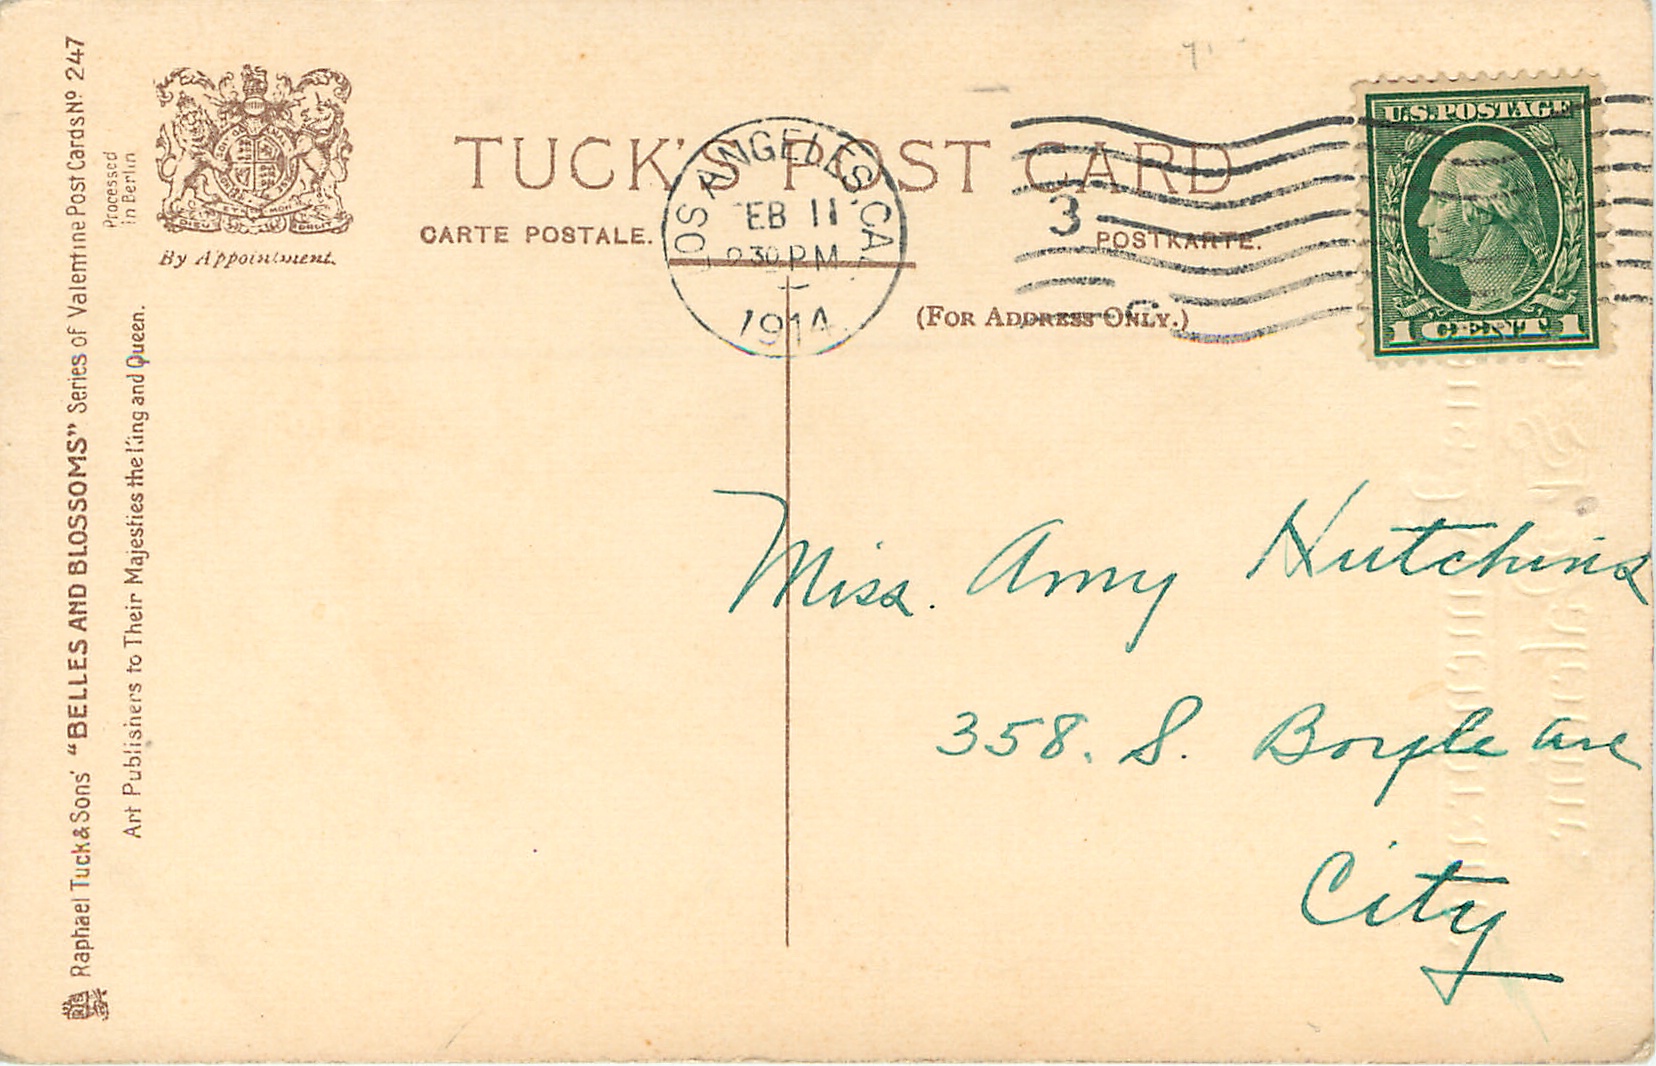 Raphael Tuck & Sons' "BELLES AND BLOSSOMS" Series of Valentine Post Cards Nº 247
Art Publishers to Their Majesties the King and Queen.
Processed
in Berlin
By Appointment.
TUCK'S POST CARD
CARTE POSTALE.
POSTKARTE.
(FOR ADDRESS ONLY.)
LOS ANGELES, CAL
FEB 11
30 PM
1914
3
U.S. POSTAGE
1 CENT 1
Miss. Amy Hutchins
358. S. Boyle Ave
City